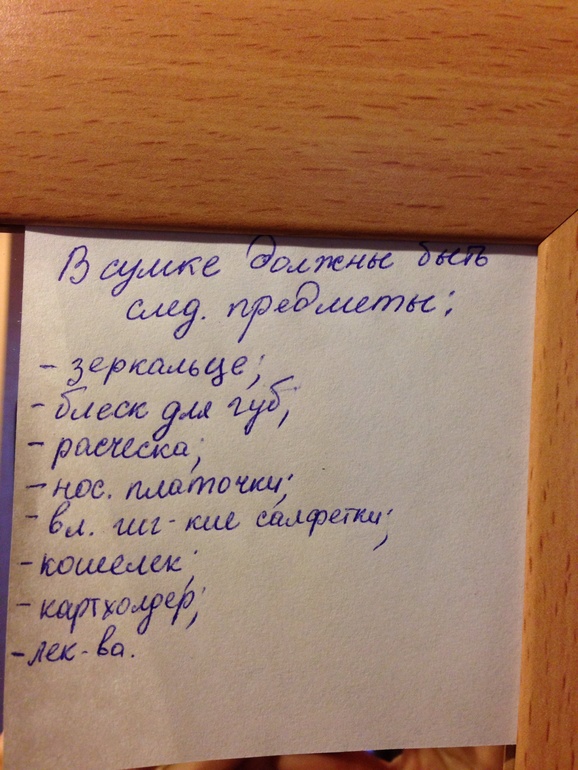 В сумке должны быть
след. предметы:
- зеркальце;
- блеск для губ;
- расческа;
- нос. платочки;
- вл. гиг-кие салфетки;
- кошелек;
- картхолдер;
- лек-ва.